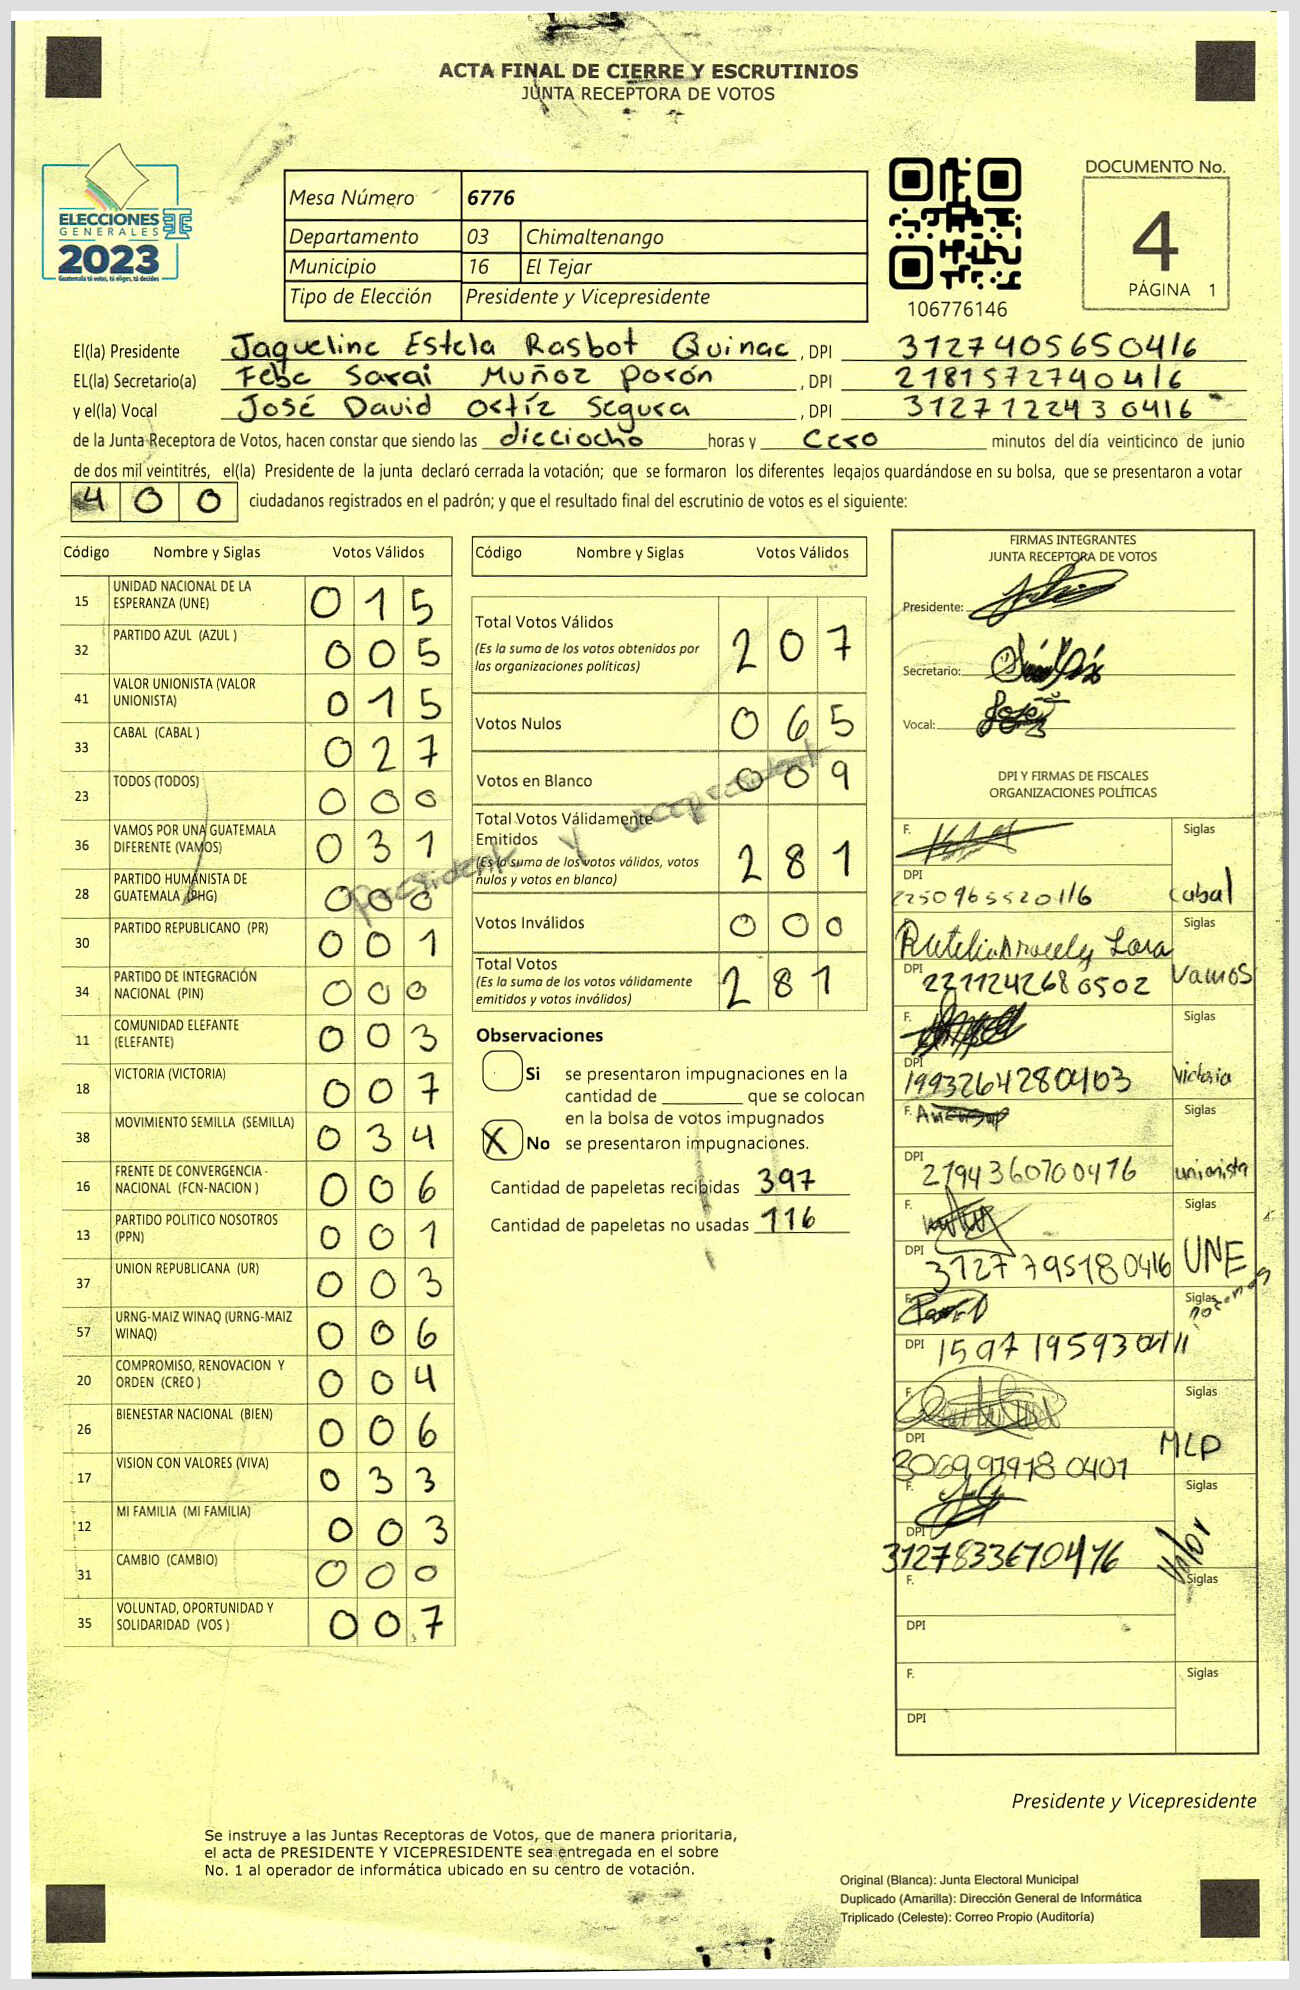 ACTA FINAL DE CIERRE Y ESCRUTINIOS
JUNTA RECEPTORA DE VOTOS
ELECCIONES
GENERALES
2023
Guatemala tú votas, tú eliges, tú decides
Mesa Número 6776
Departamento 03 Chimaltenango
Municipio 16 El Tejar
Tipo de Elección Presidente y Vicepresidente
106776146
DOCUMENTO No.
4
PÁGINA 1
El(la) Presidente Jaqueline Estela Rasbot Quinac , DPI 3127405650416
EL(la) Secretario(a) Febe Sarai Muñoz Porón , DPI 2181572740416
y el(la) Vocal José David Ortíz Segura , DPI 3127122430416
de la Junta Receptora de Votos, hacen constar que siendo las dieciocho horas y cero minutos del día veinticinco de junio
de dos mil veintitrés, el(la) Presidente de la junta declaró cerrada la votación; que se formaron los diferentes legajos quardándose en su bolsa, que se presentaron a votar
400 ciudadanos registrados en el padrón; y que el resultado final del escrutinio de votos es el siguiente:
Código Nombre y Siglas Votos Válidos
15 UNIDAD NACIONAL DE LA ESPERANZA (UNE) 015
32 PARTIDO AZUL (AZUL ) 005
41 VALOR UNIONISTA (VALOR UNIONISTA) 015
33 CABAL (CABAL ) 027
23 TODOS (TODOS) 000
36 VAMOS POR UNA GUATEMALA DIFERENTE (VAMOS) 031
28 PARTIDO HUMANISTA DE GUATEMALA (PHG) 000
30 PARTIDO REPUBLICANO (PR) 001
34 PARTIDO DE INTEGRACIÓN NACIONAL (PIN) 000
11 COMUNIDAD ELEFANTE (ELEFANTE) 003
18 VICTORIA (VICTORIA) 007
38 MOVIMIENTO SEMILLA (SEMILLA) 034
16 FRENTE DE CONVERGENCIA - NACIONAL (FCN-NACION ) 006
13 PARTIDO POLITICO NOSOTROS (PPN) 001
37 UNION REPUBLICANA (UR) 003
57 URNG-MAIZ WINAQ (URNG-MAIZ WINAQ) 006
20 COMPROMISO, RENOVACION Y ORDEN (CREO ) 004
26 BIENESTAR NACIONAL (BIEN) 006
17 VISION CON VALORES (VIVA) 033
12 MI FAMILIA (MI FAMILIA) 003
31 CAMBIO (CAMBIO) 000
35 VOLUNTAD, OPORTUNIDAD Y SOLIDARIDAD (VOS ) 007
President y vicepresident
Código Nombre y Siglas Votos Válidos
Total Votos Válidos 207
(Es la suma de los votos obtenidos por
las organizaciones políticas)
Votos Nulos 065
Votos en Blanco 009
Total Votos Válidamente
Emitidos 281
(Es la suma de los votos válidos, votos
nulos y votos en blanco)
Votos Inválidos 000
Total Votos 281
(Es la suma de los votos válidamente
emitidos y votos inválidos)
Observaciones
Si se presentaron impugnaciones en la
cantidad de ________ que se colocan
en la bolsa de votos impugnados
X No se presentaron impugnaciones.
Cantidad de papeletas recibidas 397
Cantidad de papeletas no usadas 116
FIRMAS INTEGRANTES
JUNTA RECEPTORA DE VOTOS
Presidente:
Secretario:
Vocal: José
DPI Y FIRMAS DE FISCALES
ORGANIZACIONES POLÍTICAS
F. Siglas
DPI 2250965520116 cabal
F. Siglas
DPI 2211242680502 Vamos
F. Siglas
DPI 1993264280403 Victoria
F. Siglas
DPI 2194360700416 unionista
F. Siglas
DPI 3127795180416 UNE
F. Siglas
DPI 1597195930411
F. Siglas
DPI 3069919180401 MLP
F. Siglas
DPI 3127833670416 Valor
F. Siglas
DPI
F. Siglas
DPI
Presidente y Vicepresidente
Se instruye a las Juntas Receptoras de Votos, que de manera prioritaria,
el acta de PRESIDENTE Y VICEPRESIDENTE sea entregada en el sobre
No. 1 al operador de informática ubicado en su centro de votación.
Original (Blanca): Junta Electoral Municipal
Duplicado (Amarilla): Dirección General de Informática
Triplicado (Celeste): Correo Propio (Auditoría)